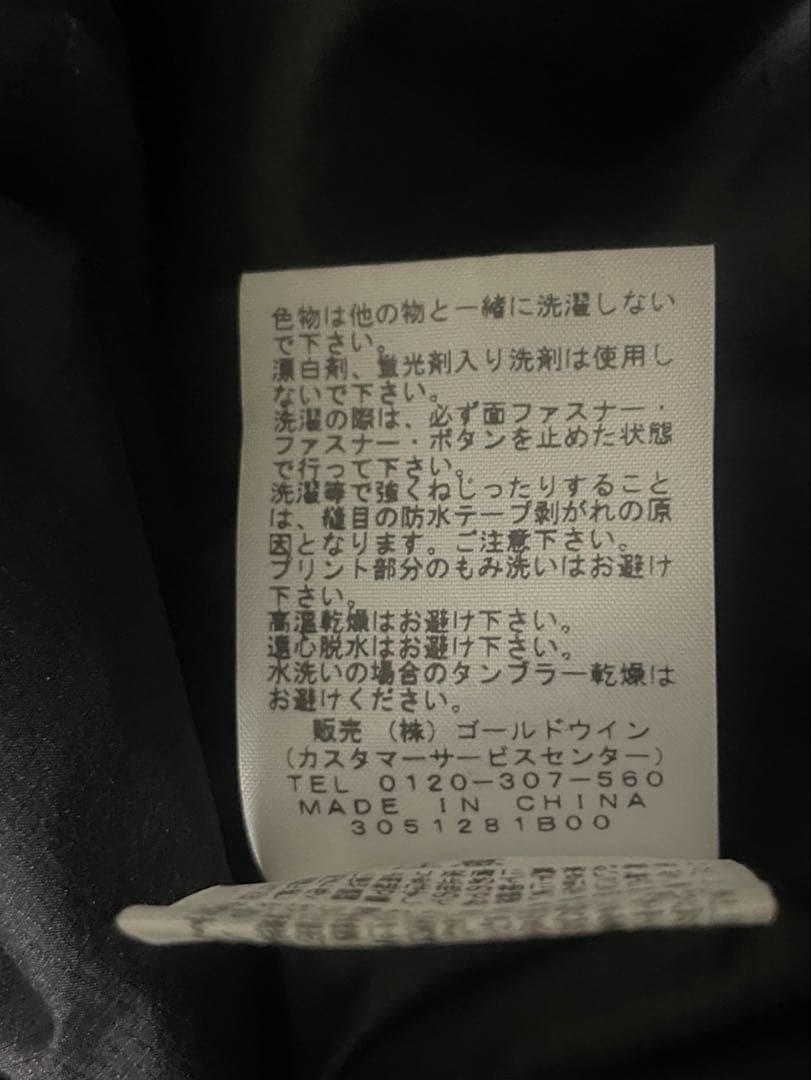 色物は他の物と一緒に洗濯しない
で下さい。
漂白剤、蛍光剤入り洗剤は使用し
ないで下さい。
洗濯の際は、必ず面ファスナー・
ファスナー・ボタンを止めた状態
で行って下さい。
洗濯等で強くねじったりすること
は、縫目の防水テープ剥がれの原
因となります。ご注意下さい。
プリント部分のもみ洗いはお避け
下さい。
高温乾燥はお避け下さい。
遠心脱水はお避け下さい。
水洗いの場合のタンブラー乾燥は
お避けください。
販売 (株) ゴールドウイン
(カスタマーサービスセンター)
TEL 0120-307-560
MADE IN CHINA
3051281B00